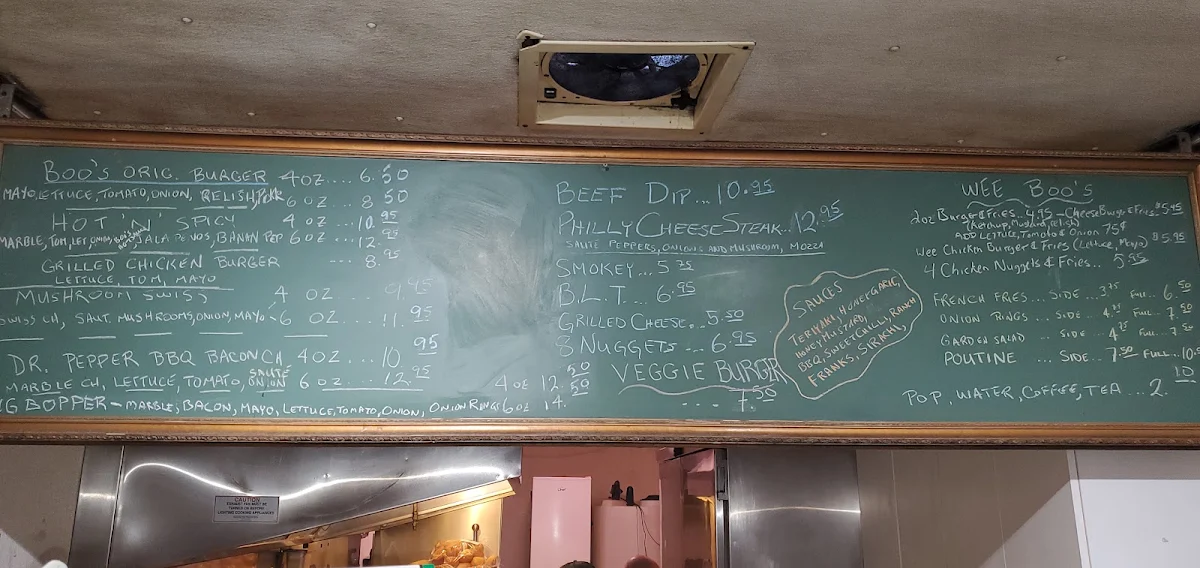 BOO'S ORIG. BURGER 4 OZ.... 6.50
MAYO, LETTUCE, TOMATO, ONION, RELISH, 6 OZ... 8.50
HOT 'N' SPICY 4 OZ....10.95
MARBLE, TOM, LET, BANAN PEP 6 OZ... 12.95
GRILLED CHICKEN BURGER ... 8.95
LETTUCE, TOM, MAYO
MUSHROOM SWISS 4 OZ.... 9.95
SWISS CH, SAUT. MUSHROOMS, ONION, MAYO - 6 OZ.... 11.95
DR. PEPPER BBQ BACON CH 4 OZ.... 10.95
MARBLE CH, LETTUCE, TOMATO, SAUTÉ ONION 6 OZ.....12.95
BOPPER - MARBLE, BACON, MAYO, LETTUCE, TOMATO, ONION, ONION RINGS
4 OZ 12.50
6 OZ 14.50
BEEF DIP... 10.95
PHILLY CHEESE STEAK..12.95
SAUTÉ PEPPERS, ONIONS AND MUSHROOM, MOZZA
SMOKEY... 5.75
B.L.T.... 6.95
GRILLED CHEESE... 5.50
8 NUGGETS... 6.95
VEGGIE BURGER
.... 7.50
SAUCES
TERIYAKI, HONEY GARLIC,
HONEY MUSTARD,
BBQ, SWEET CHILLY, RANCH
FRANKS, SIRACHI,
WEE BOO'S
2oz Burger & Fries.. 4.95 - Cheese Burger & Fries $5.45
(Ketchup, Mustard, Relish)
ADD LETTUCE, Tomato & Onion 75¢
Wee Chicken Burger & Fries (Lettuce, Mayo) $5.95
4 Chicken Nuggets & Fries.. 5.95
FRENCH FRIES... SIDE... 3.75 FULL.. 6.50
ONION RINGS ... SIDE.. 4.75 FULL.. 7.50
GARDEN SALAD .. SIDE.. 4.75 FULL... 7.50
POUTINE .. SIDE.. 7.50 FULL... 10.5
POP, WATER, COFFEE, TEA ... 2.10
CAUTION